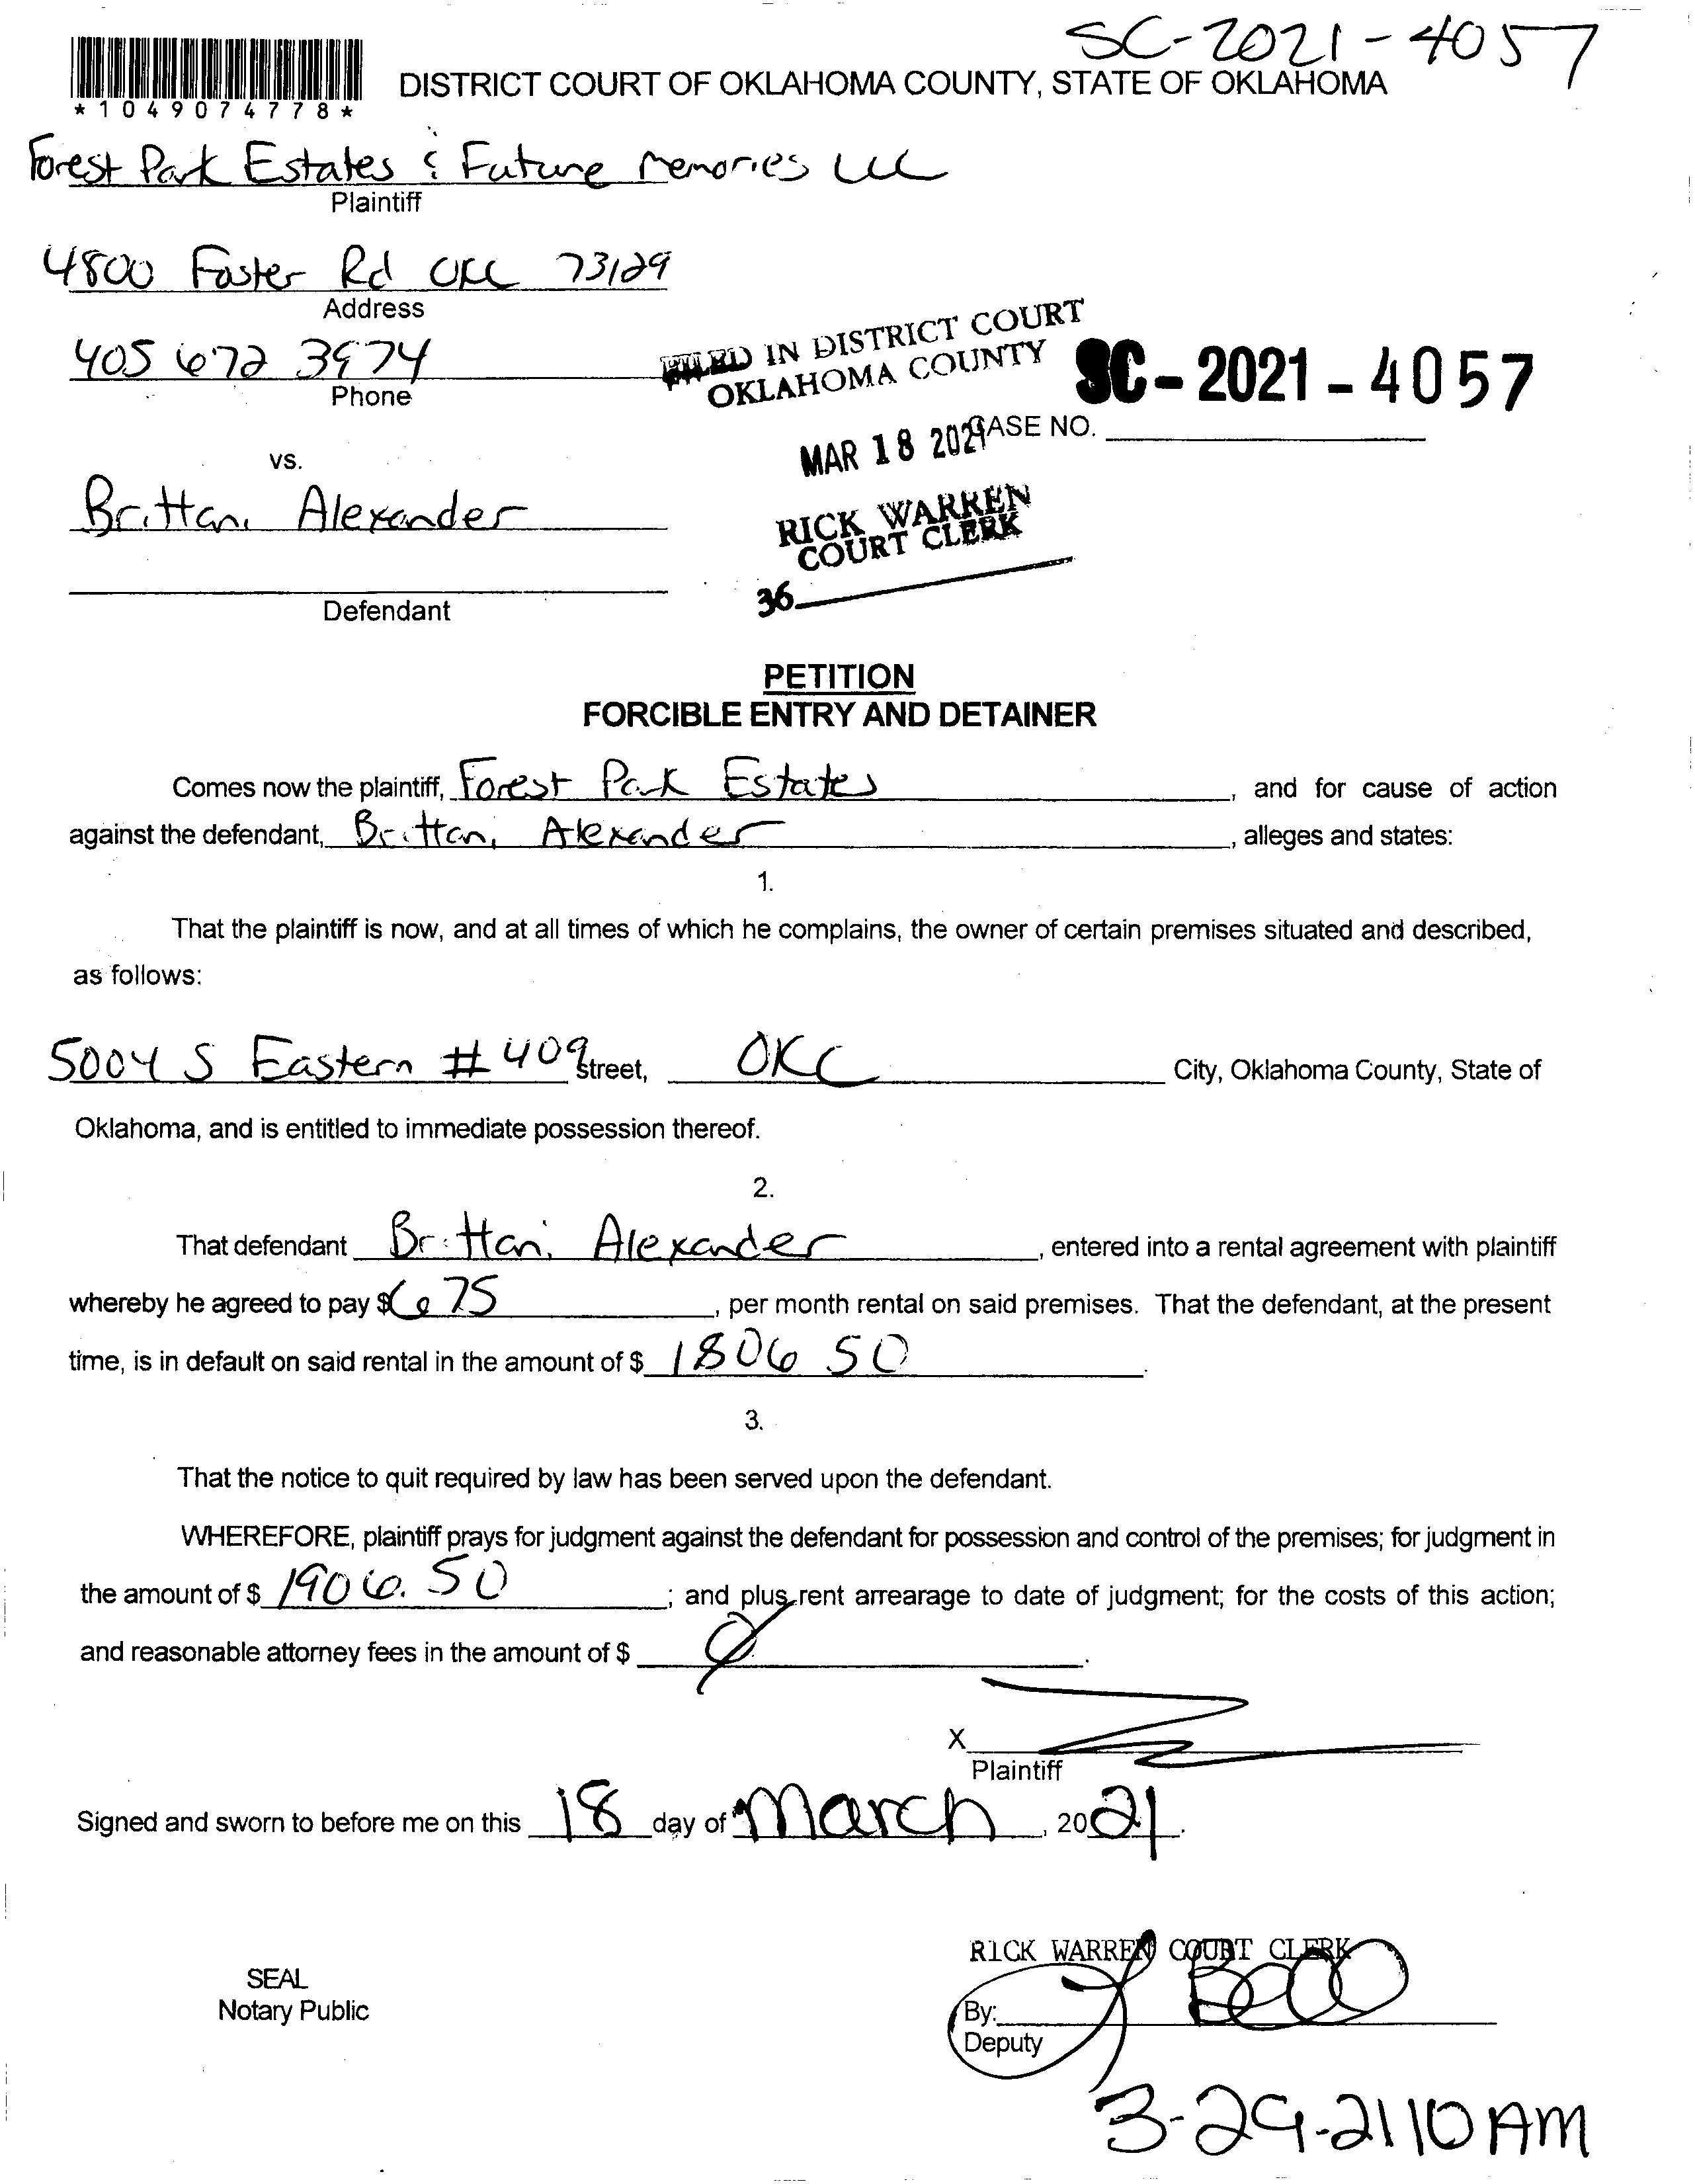 SC-2021-4057
DISTRICT COURT OF OKLAHOMA COUNTY, STATE OF OKLAHOMA
*1049074778*
Forest Park Estates & Future Memories LLC
Plaintiff
4800 Foster Rd OKC 73129
Address
405 672 3974
Phone
FILED IN DISTRICT COURT
OKLAHOMA COUNTY
SC-2021-4057
CASE NO.
MAR 18 2021
vs.
Brittani Alexander
RICK WARREN
COURT CLERK
36
Defendant
PETITION
FORCIBLE ENTRY AND DETAINER
Comes now the plaintiff, Forest Park Estates, and for cause of action
against the defendant, Brittani Alexander, alleges and states:
1.
That the plaintiff is now, and at all times of which he complains, the owner of certain premises situated and described,
as follows:
5004 S Eastern # 409 Street, OKC City, Oklahoma County, State of
Oklahoma, and is entitled to immediate possession thereof.
2.
That defendant Brittani Alexander, entered into a rental agreement with plaintiff
whereby he agreed to pay $675, per month rental on said premises. That the defendant, at the present
time, is in default on said rental in the amount of $ 1806 50.
3.
That the notice to quit required by law has been served upon the defendant.
WHEREFORE, plaintiff prays for judgment against the defendant for possession and control of the premises; for judgment in
the amount of $ 1906.50; and plus rent arrearage to date of judgment; for the costs of this action;
and reasonable attorney fees in the amount of $ Ø.
X
Plaintiff
Signed and sworn to before me on this 18 day of March, 2021.
RICK WARREN COURT CLERK
SEAL
Notary Public
By:
Deputy
3-29-21 10 AM